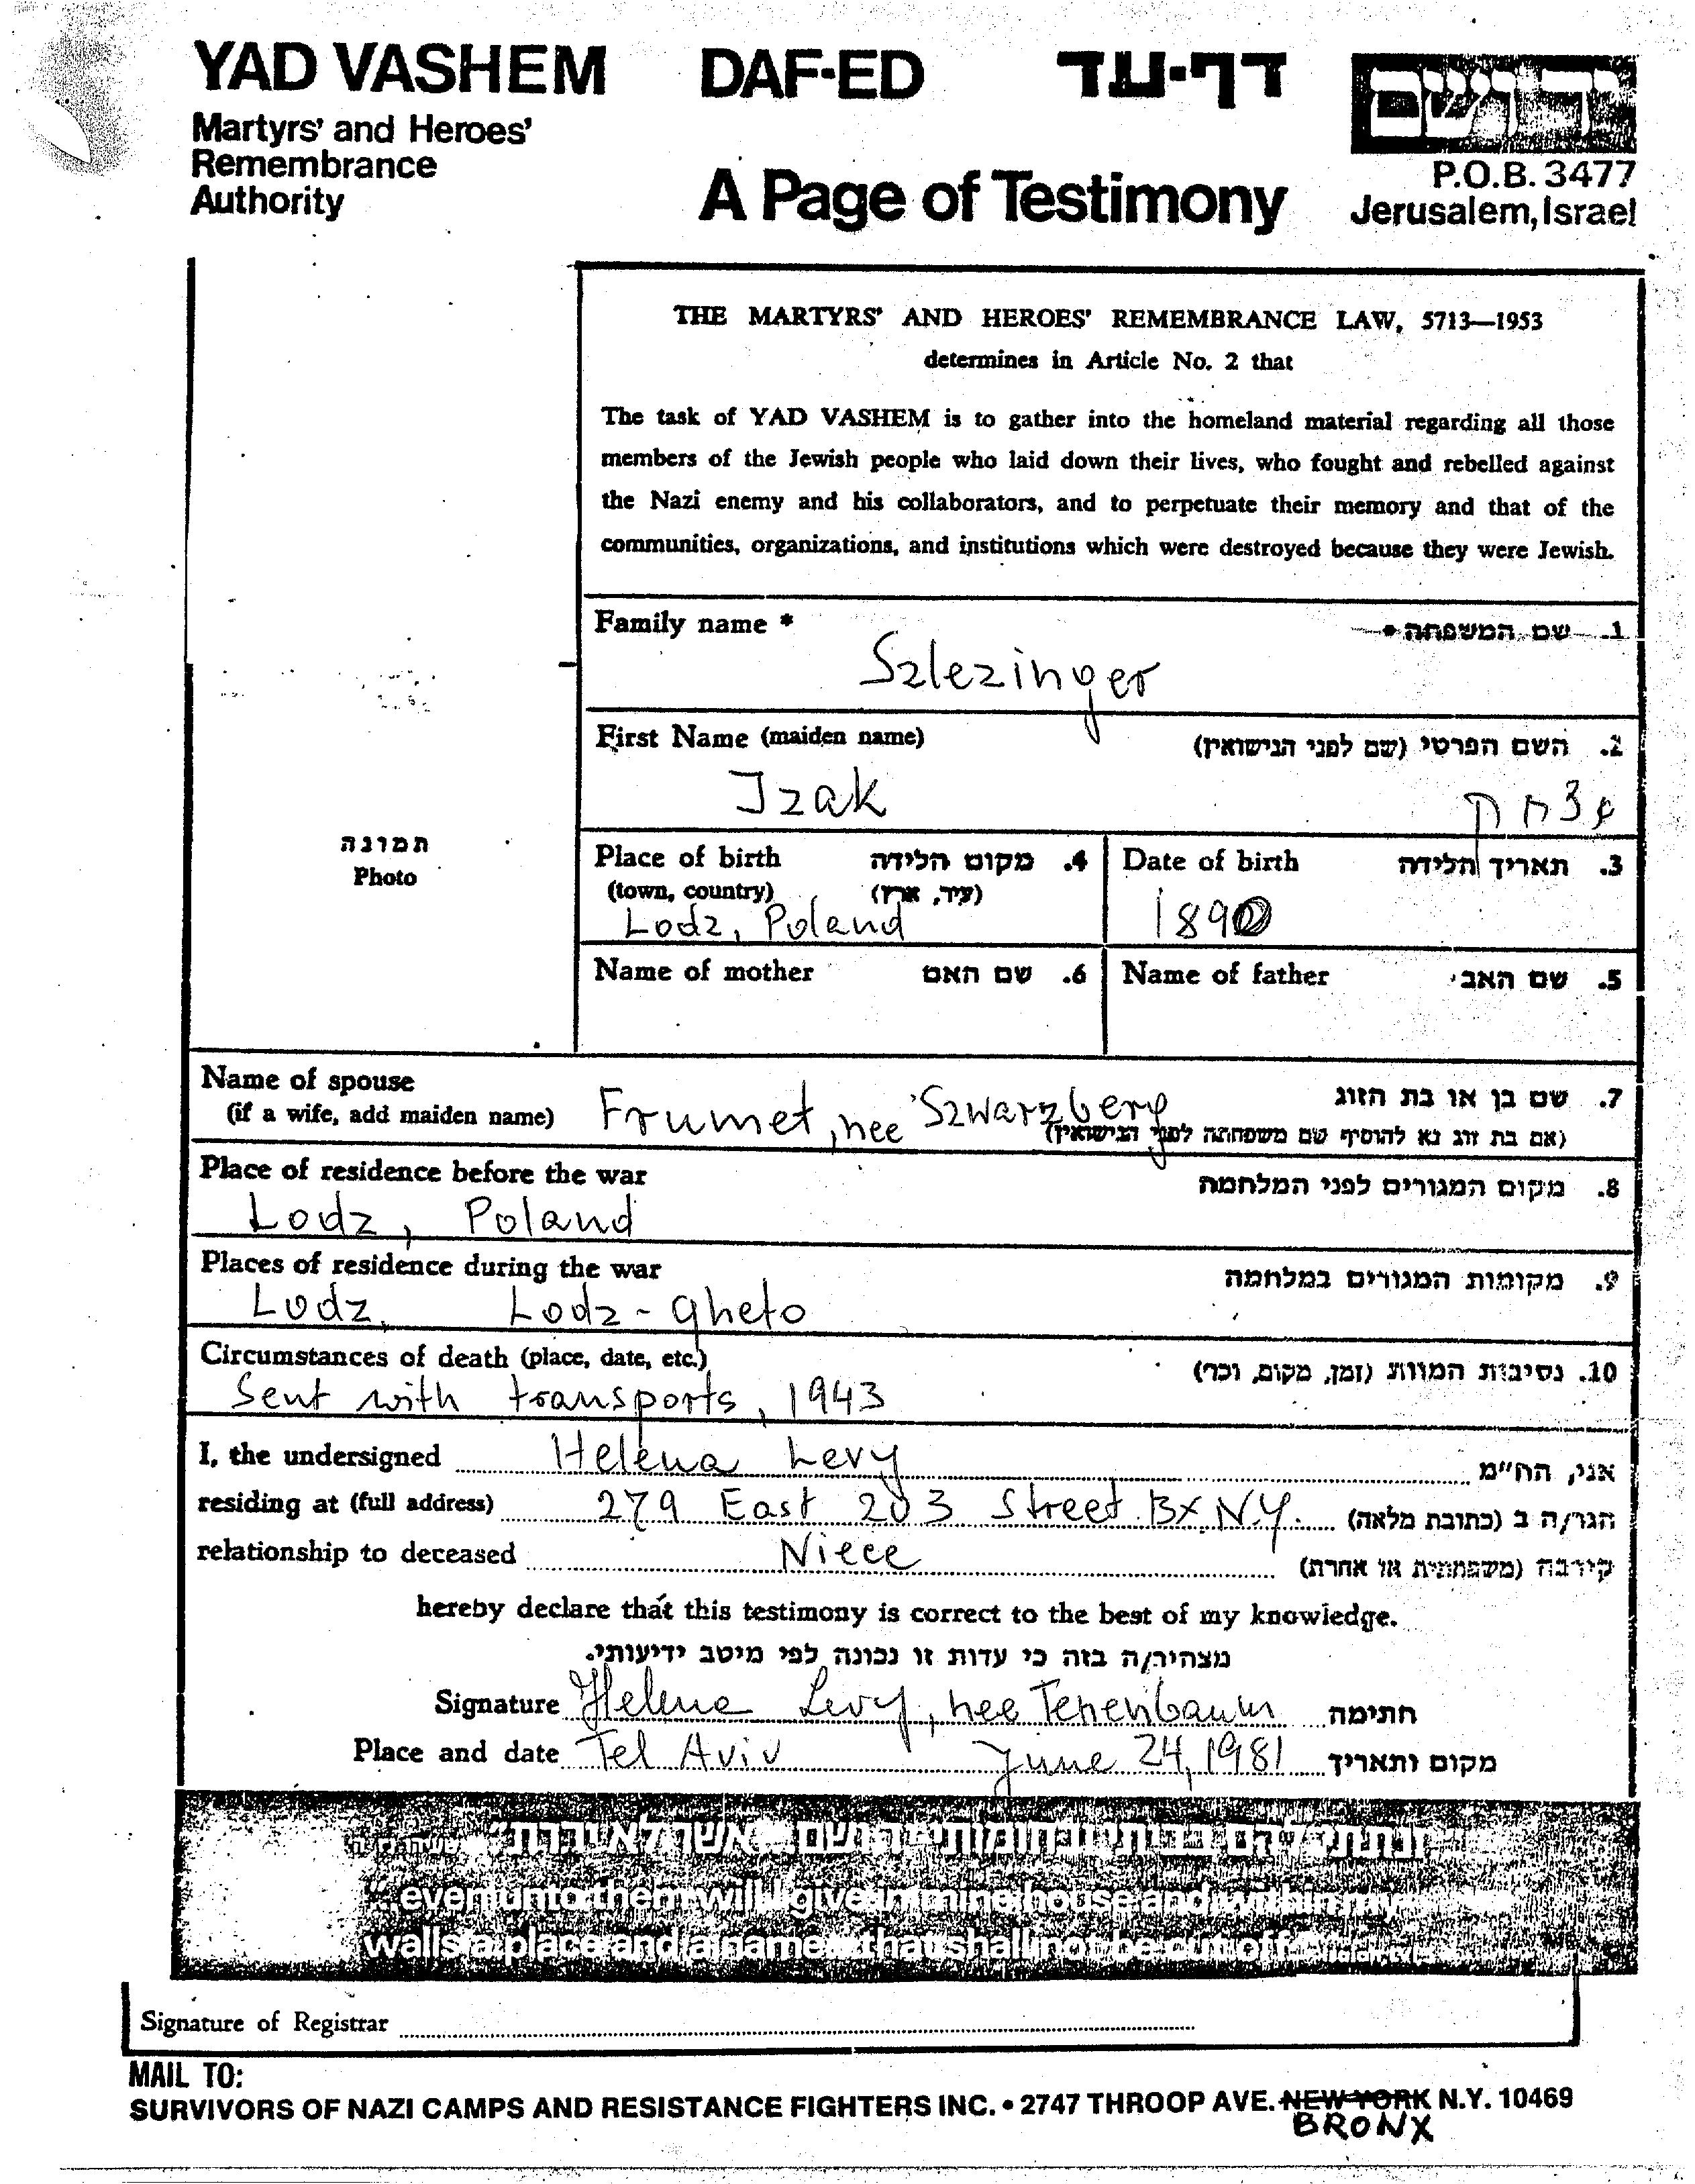 YAD VASHEM DAF-ED דף-עד ידושם
Martyrs' and Heroes'
Remembrance
Authority
A Page of Testimony
P.O.B. 3477
Jerusalem, Israel
THE MARTYRS' AND HEROES' REMEMBRANCE LAW, 5713—1953
determines in Article No. 2 that
The task of YAD VASHEM is to gather into the homeland material regarding all those
members of the Jewish people who laid down their lives, who fought and rebelled against
the Nazi enemy and his collaborators, and to perpetuate their memory and that of the
communities, organizations, and institutions which were destroyed because they were Jewish.
Family name * 1. שם המשפחה *
Szlezinger
First Name (maiden name) 2. השם הפרטי (שם לפני הנישואין)
Izak יצחק
תמונה
Photo
Place of birth 4. מקום הלידה
(town, country) (עיר, ארץ)
Lodz, Poland
Date of birth 3. תאריך הלידה
1890
Name of mother 6. שם האם
Name of father 5. שם האב
Name of spouse 7. שם בן או בת הזוג
(if a wife, add maiden name) Frumet, nee Szwarzberg (אם בת זוג נא להוסיף שם משפחתה לפני הנישואין)
Place of residence before the war 8. מקום המגורים לפני המלחמה
Lodz, Poland
Places of residence during the war 9. מקומות המגורים במלחמה
Lodz, Lodz - gheto
Circumstances of death (place, date, etc.) 10. נסיבות המוות (זמן, מקום, וכו')
Sent with transports, 1943
I, the undersigned Helena Levy אני, הח"מ
residing at (full address) 279 East 203 Street Bx N.Y. הגר/ה ב (כתובת מלאה)
relationship to deceased Niece קירבה (משפחתית או אחרת)
hereby declare that this testimony is correct to the best of my knowledge.
מצהיר/ה בזה כי עדות זו נכונה לפי מיטב ידיעותי.
Signature Helene Levy, nee Tenenbaum חתימה
Place and date Tel Aviv June 24, 1981 מקום ותאריך
"...even unto them will I give in mine house and within my
walls a place and a name... that shall not be cut off."
Signature of Registrar
MAIL TO:
SURVIVORS OF NAZI CAMPS AND RESISTANCE FIGHTERS INC. • 2747 THROOP AVE. NEW YORK N.Y. 10469
BRONX